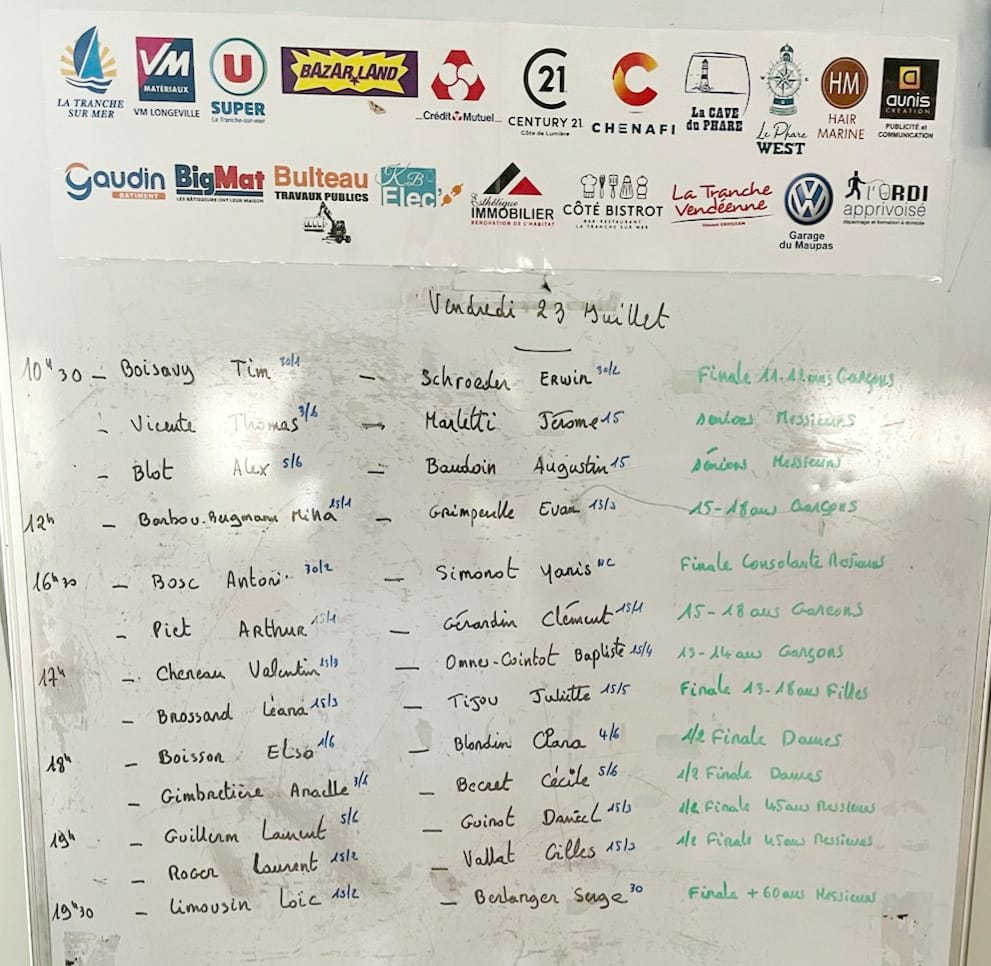 LA TRANCHE SUR MER
VM MATÉRIAUX VM LONGEVILLE
U SUPER La Tranche-sur-mer
BAZAR LAND
Crédit Mutuel
C21 CENTURY 21 Côte de Lumière
CHENAFI
La CAVE du PHARE
Le Phare WEST
HM HAIR MARINE
aunis CREATION PUBLICITÉ et COMMUNICATION
Gaudin BATIMENT
BigMat LES BÂTISSEURS ONT LEUR MAISON
Bulteau TRAVAUX PUBLICS
KB Elec'
Esthétique IMMOBILIER RÉNOVATION DE L'HABITAT
CÔTÉ BISTROT BAR-RESTAURANT LA TRANCHE SUR MER
La Tranche Vendéenne
Garage du Maupas
l'ORDI apprivoisé dépannage et formation à domicile
Vendredi 23 Juillet
10H30 - Boisavy Tim 30/1 - Schroeder Erwin 30/2 Finale 11-12 ans Garçons
- Vicente Thomas 3/6 - Marletti Jérome 15 Séniors Messieurs
- Blot Alex 5/6 - Baudoin Augustin 15 Séniors Messieurs
12h - Barbou-Bergmann Miha 15/1 - Grimperelle Evan 15/3 15-18 ans Garçons
16h30 - Bosc Antoni 30/2 - Simonot Yanis NC Finale Consolante Messieurs
- Piet ARTHUR 15/1 - Gérardin Clément 15/1 15-18 ans Garcons
17h - Cheneau Valentin 15/3 - Omnes-Cointot Baptiste 15/4 13-14 ans Garçons
- Brossard Léana 15/3 - Tijou Juliette 15/5 Finale 13-18 ans Filles
18h - Boisson Elsa 1/6 - Blondin Clara 4/6 1/2 Finale Dames
- Gimbretière Anaelle 3/6 - Becret Cécile 5/6 1/2 Finale Dames
19h - Guillerm Laurent 5/6 - Guinot Daniel 15/3 1/2 Finale 45 ans Messieurs
- Roger Laurent 15/2 - Vallat Gilles 15/3 1/2 Finale 45 ans Messieurs
19h30 - Limousin Loïc 15/2 - Berlanger Serge 30 Finale +60 ans Messieurs